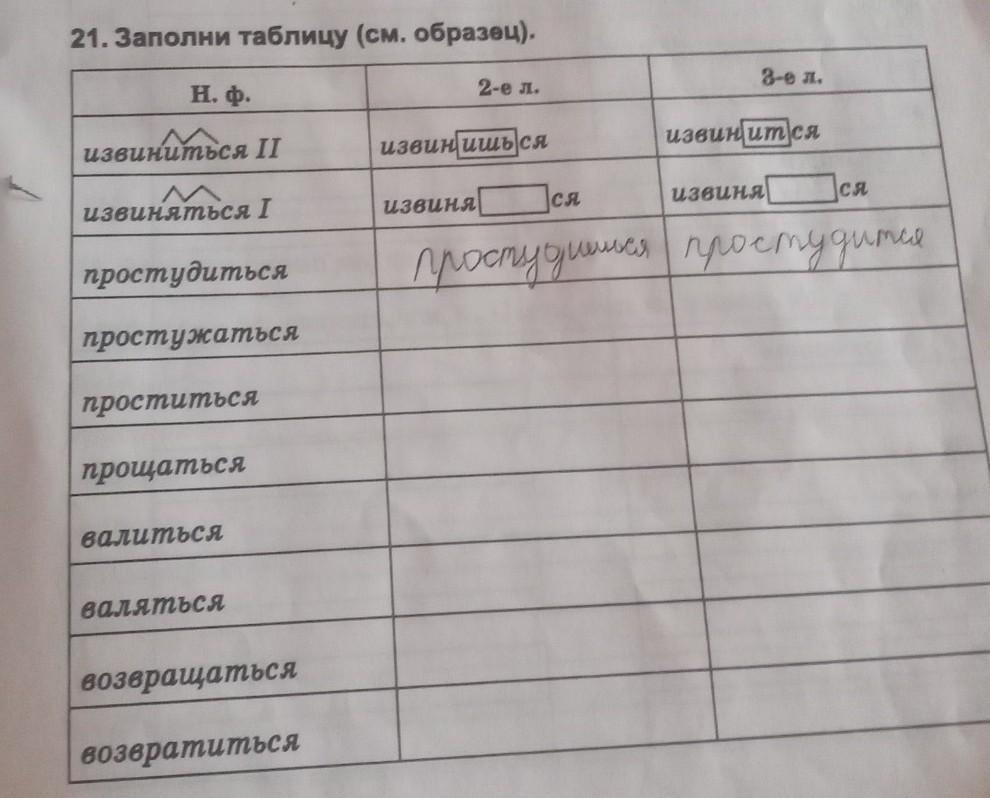 21. Заполни таблицу (см. образец).
Н. ф. 2-е л. 3-е л.
извиниться II извинишься извинится
извиняться I извиня ся извиня ся
простудиться простудишься простудится
простужаться
проститься
прощаться
валиться
валяться
возвращаться
возвратиться